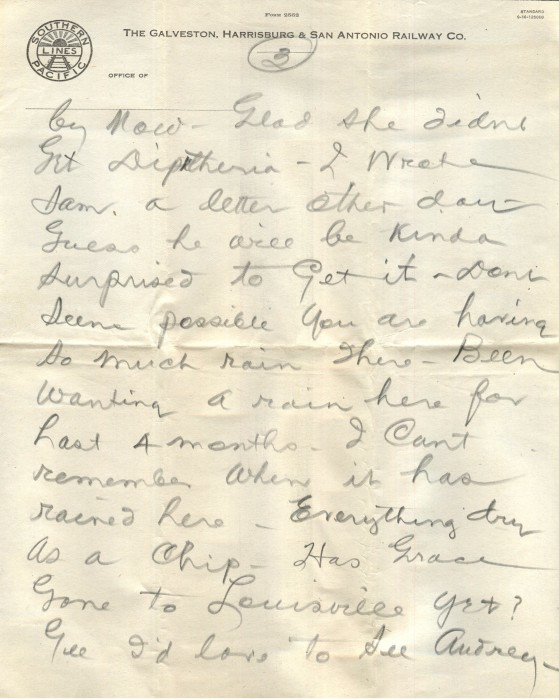 FORM 2552
STANDARD
SOUTHERN PACIFIC
LINES
THE GALVESTON, HARRISBURG & SAN ANTONIO RAILWAY CO.
3
OFFICE OF
by Now - Glad she didnt
Get Diptheria - I Wrote
Sam. a letter other day
Guess he will be Kinda
surprised to Get it - Dont
Seem possible You are having
So much rain There - Been
Wanting a rain here for
last 4 months - I Cant
remember When it has
rained here - Everything dry
As a Chip - Has Grace
Gone to Louisville yet?
Gee I'd love to See Audrey -